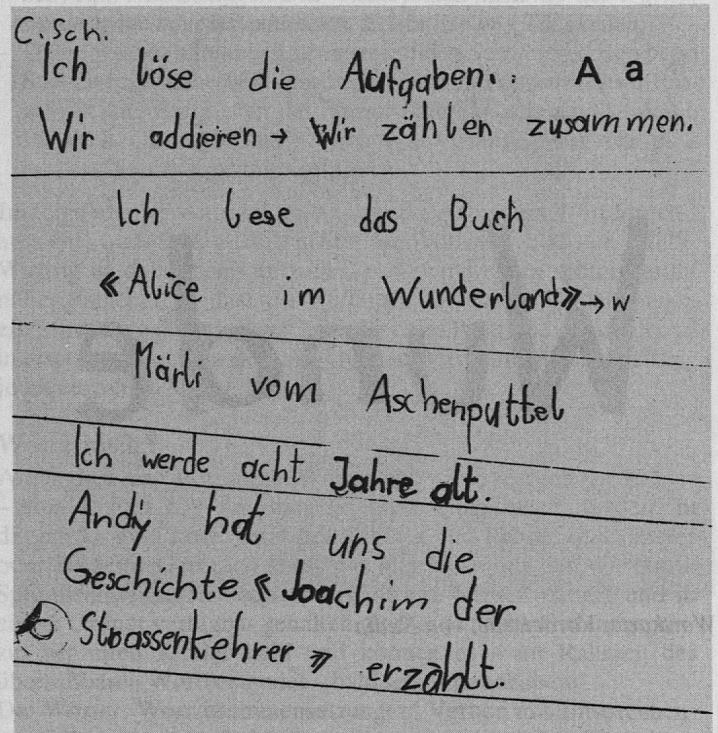 C. Sch.
Ich löse die Aufgaben.: A a
Wir addieren → Wir zählen zusammen.
Ich lese das Buch
« Alice im Wunderland» → w
Märli vom Aschenputtel
Ich werde acht Jahre alt.
Andy hat uns die
Geschichte « Joachim der
Strassenkehrer » erzählt.